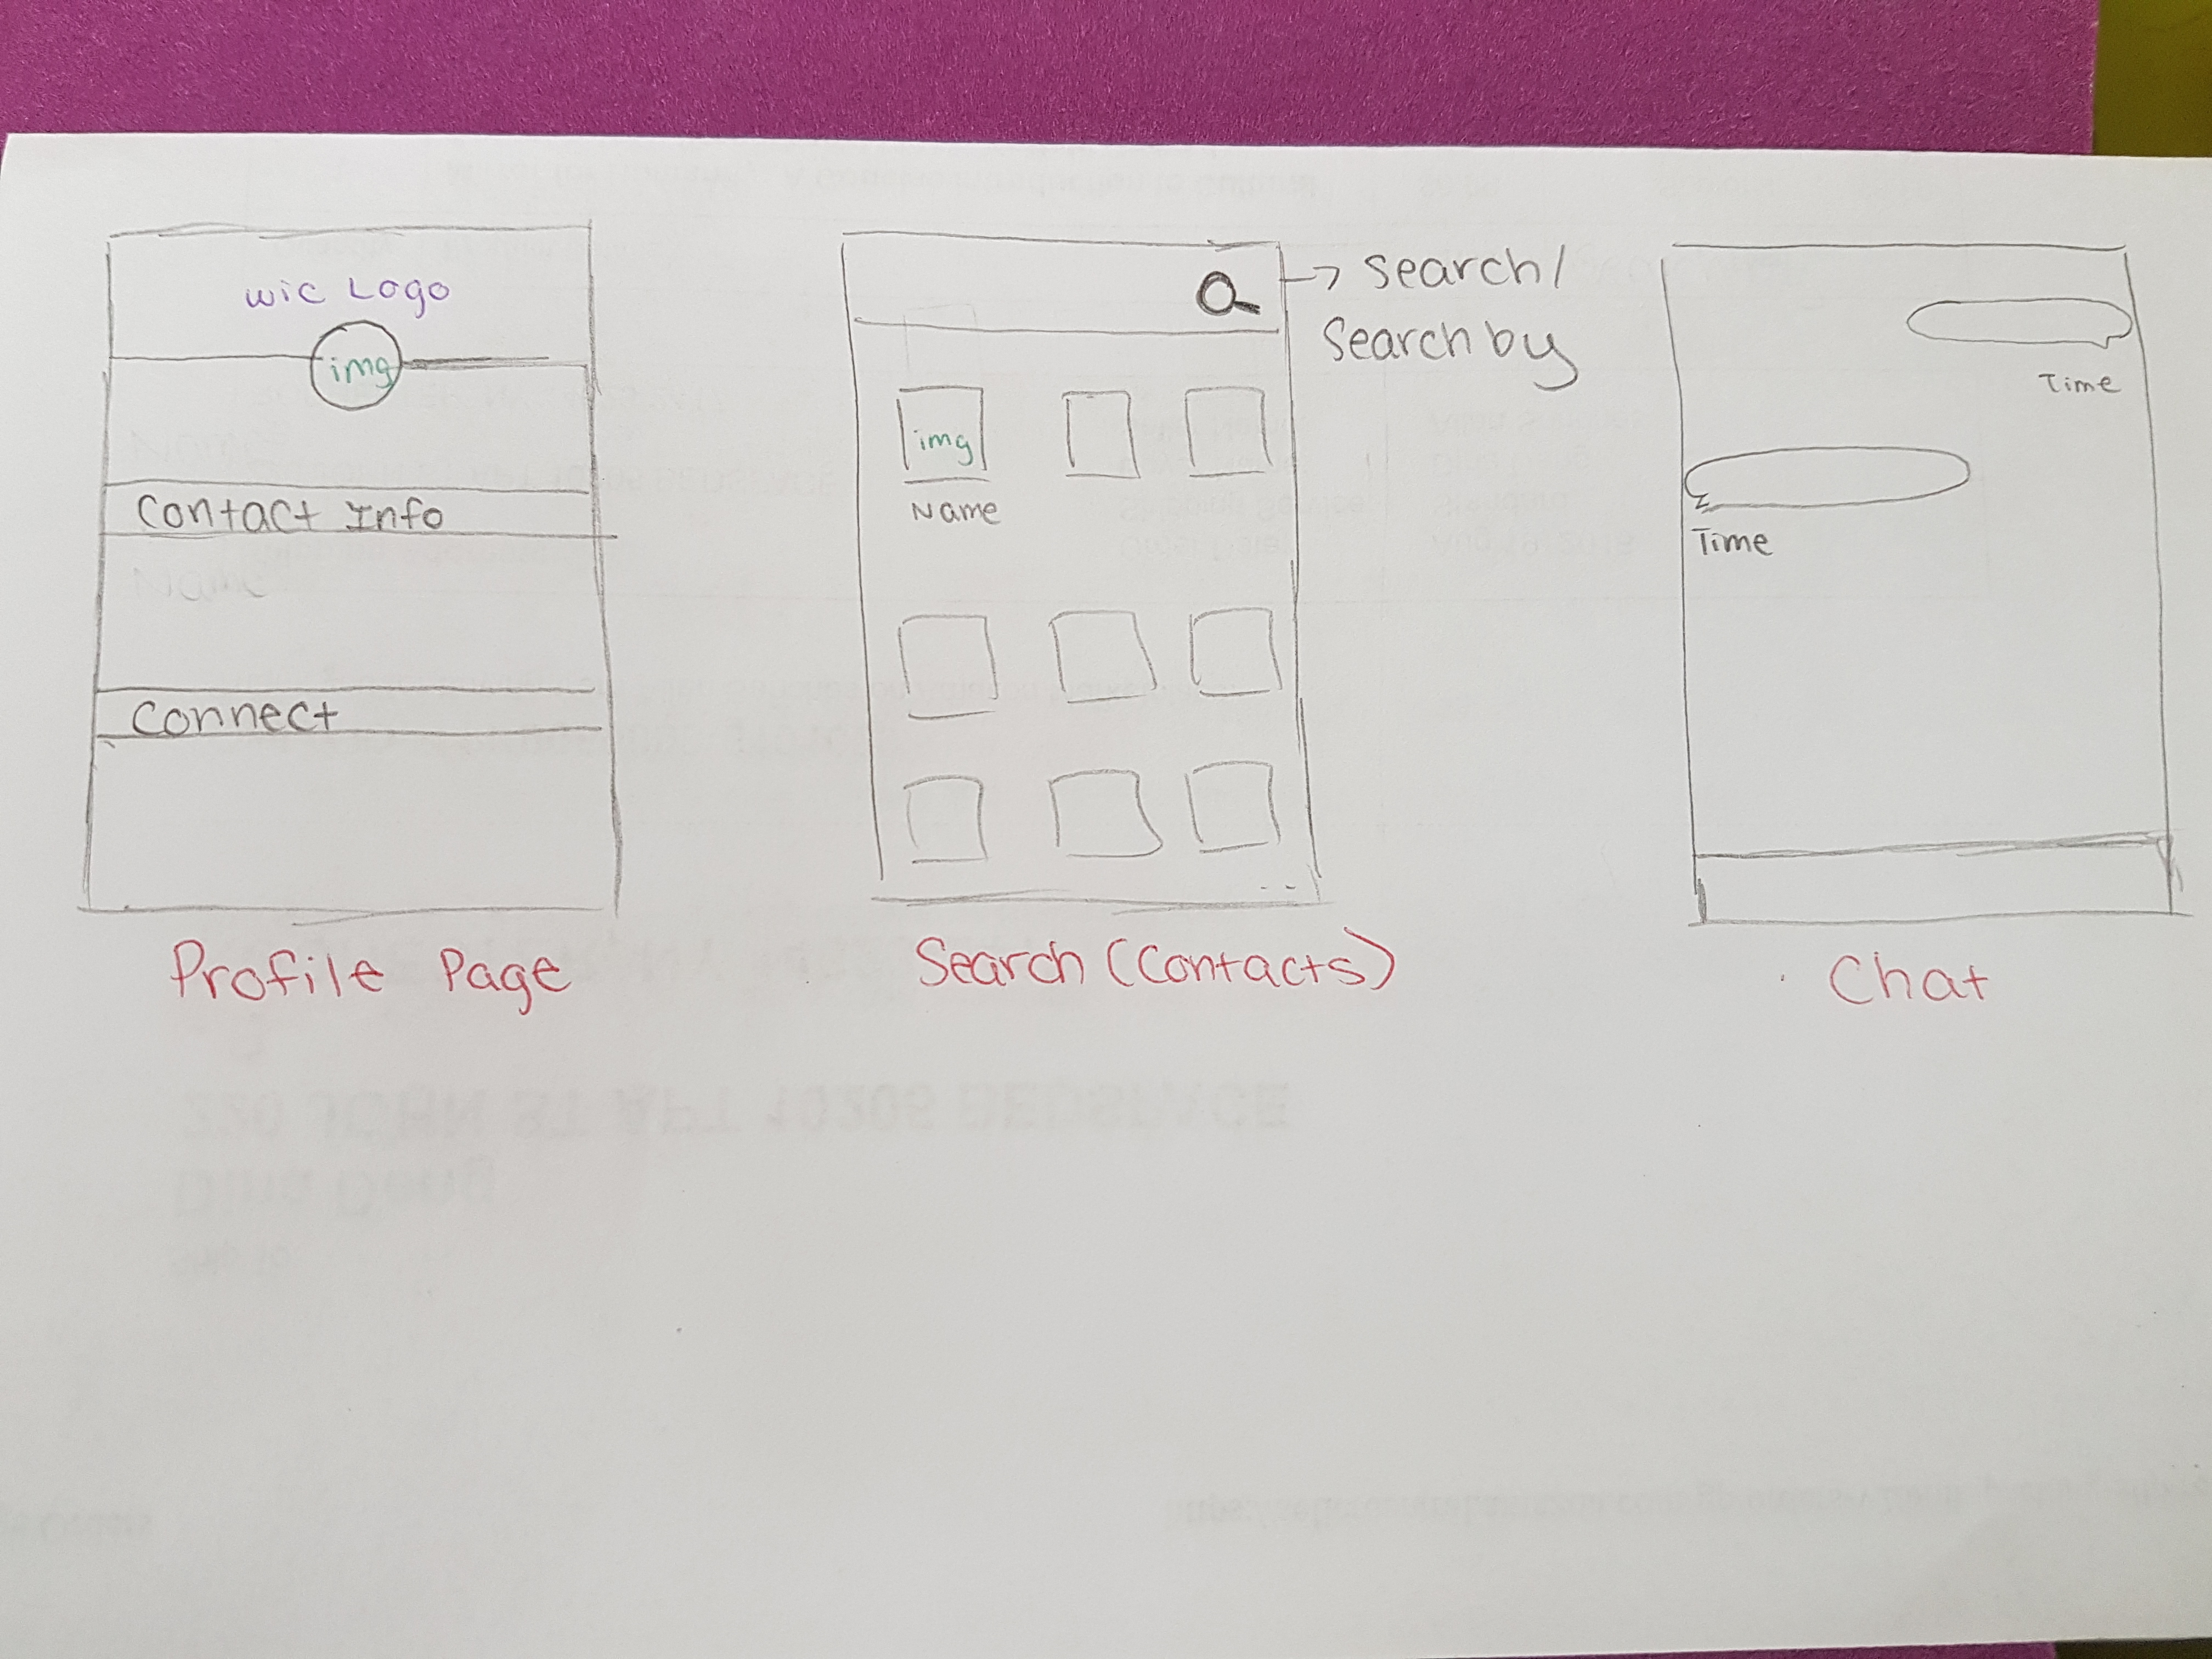 wic Logo
img
Contact Info
Connect
Profile Page
search/
Search by
img
Name
Search (Contacts)
Time
Time
Chat